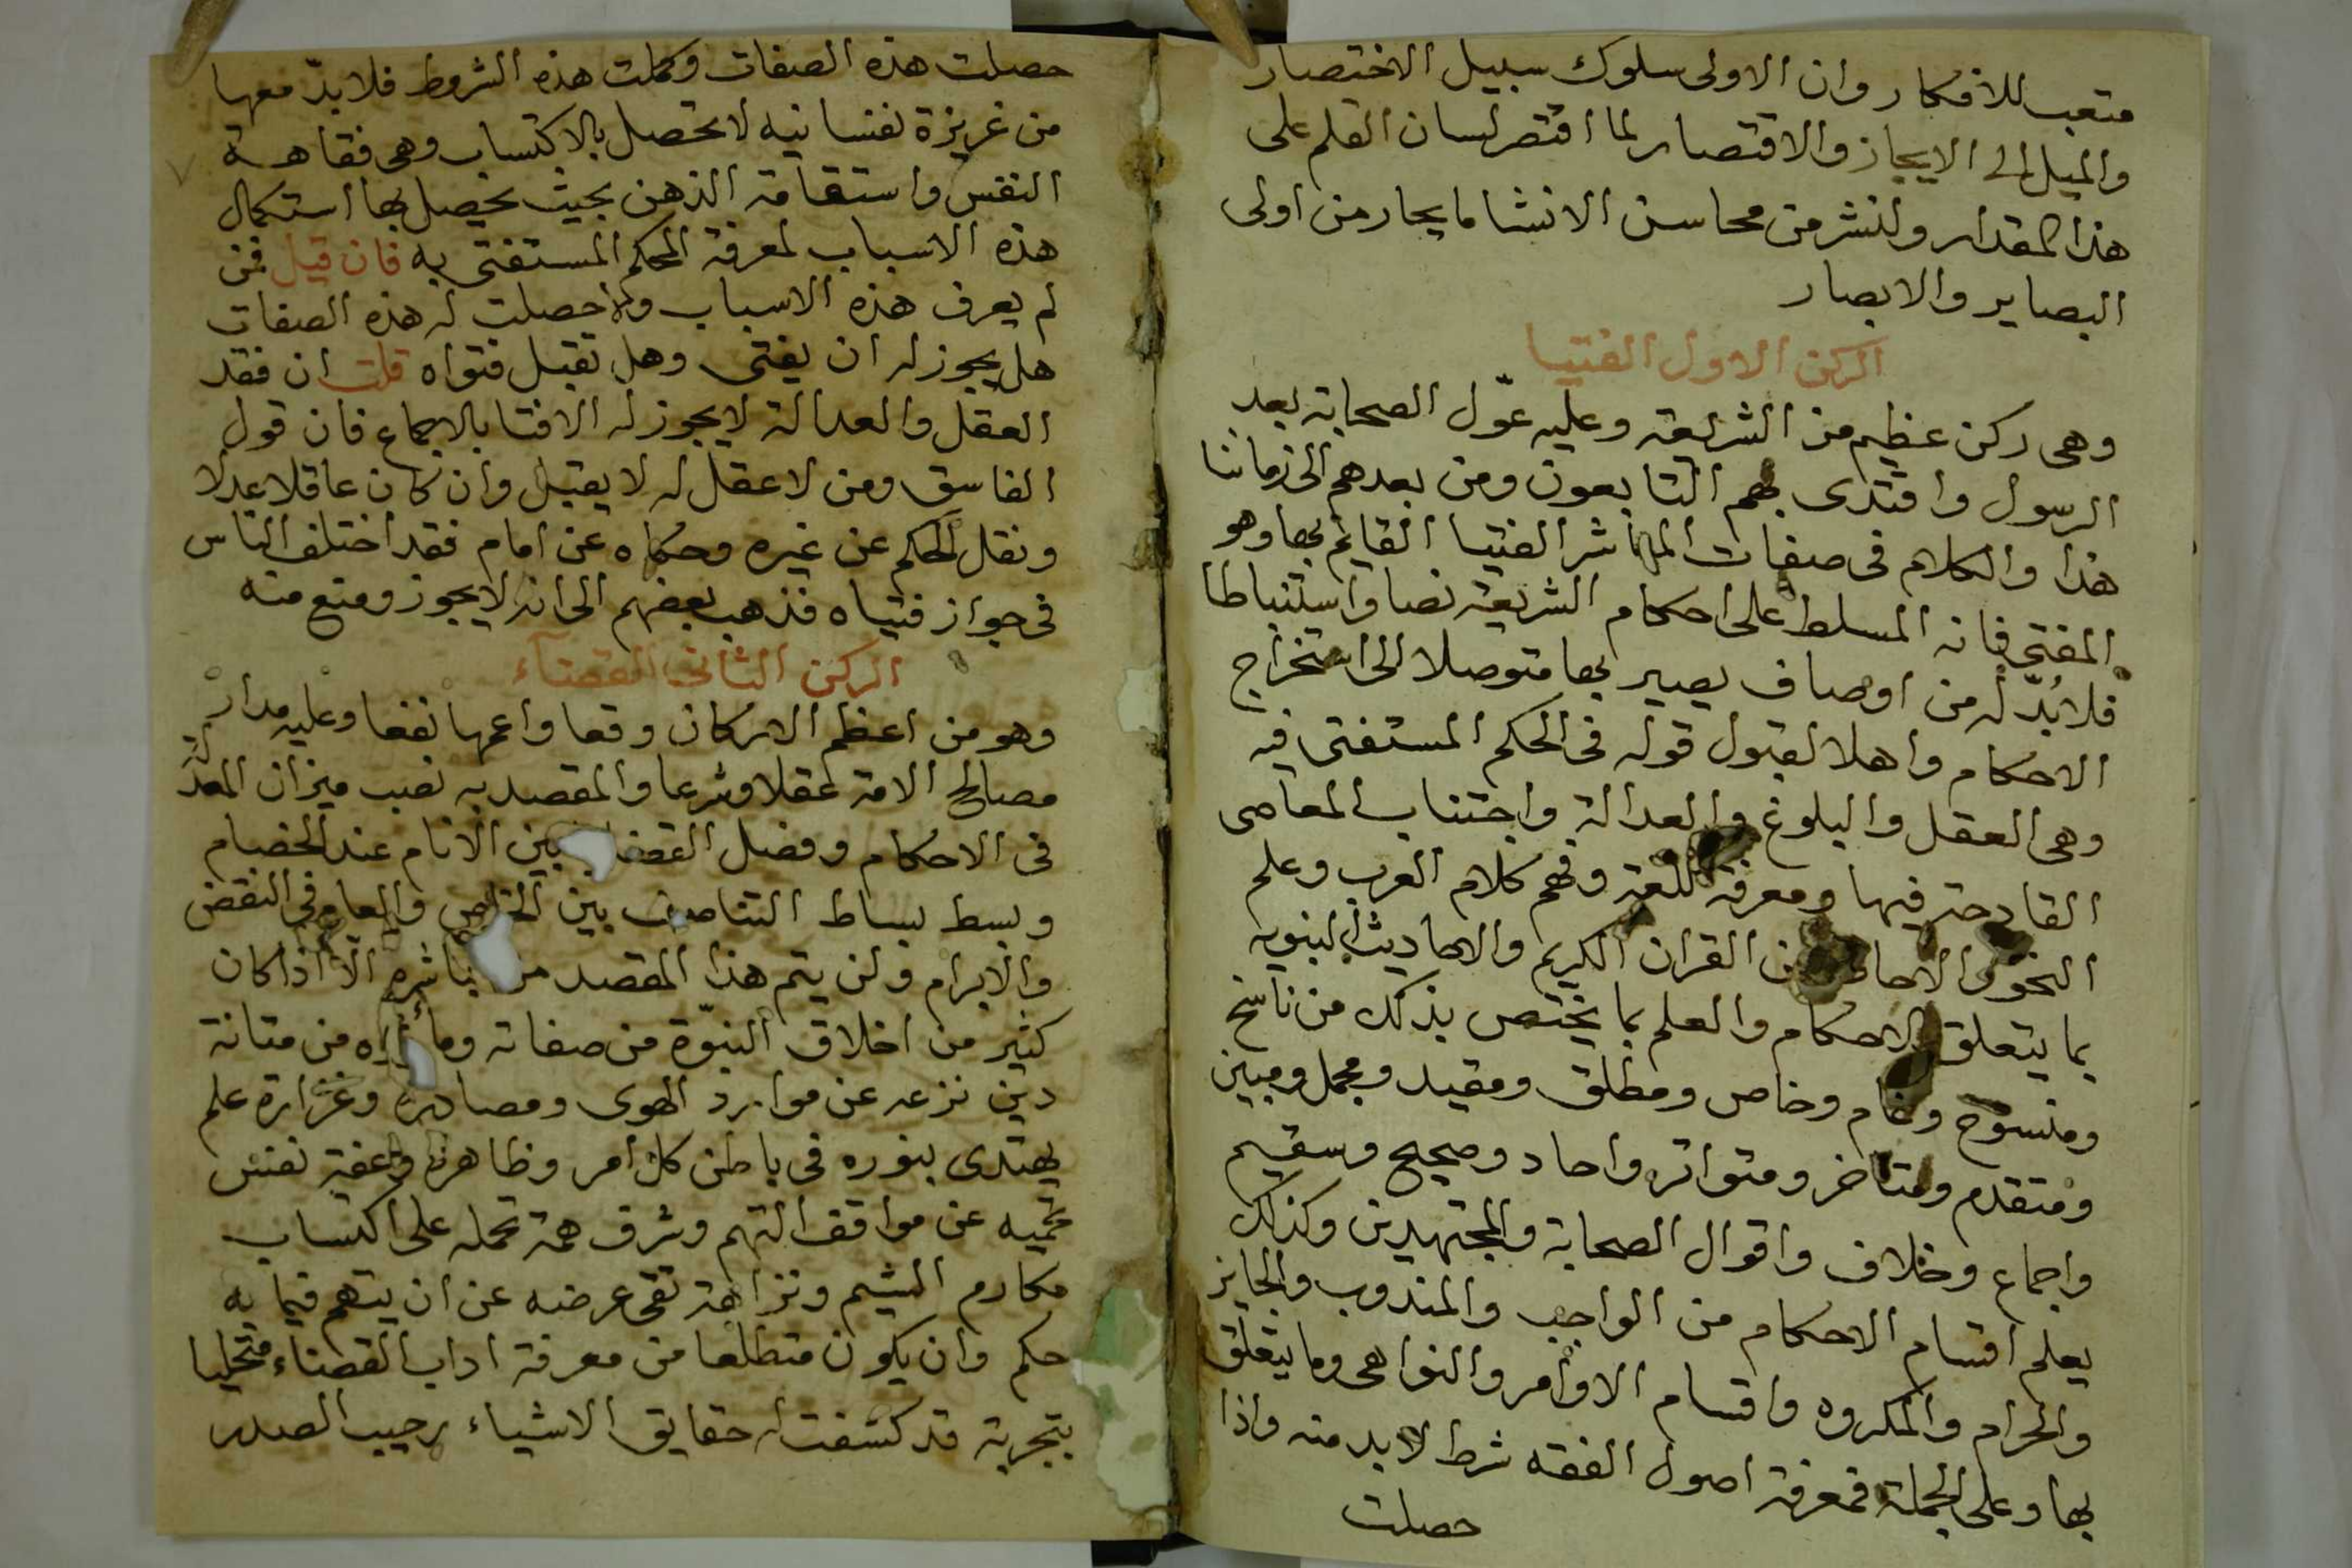 متعب للافكار وان الاولى سلوك سبيل الاختصار
والميل الى الايجاز والاقتصار لما اقتصر لسان القلم على
هذا المقدار ولنشر من محاسن الانشا ما يحار من اولى
البصاير والابصار
الركن الاول الفتيا
وهى ركن عظيم من الشريعة وعليه عوّل الصحابة بعد
الرسول واقتدى بهم التابعون ومن بعدهم الى زماننا
هذا والكلام فى صفات المباشر الفتيا القايم بها وهو
المفتى فانه المسلط على احكام الشريعة نصا واستنباطا
فلابُدّ له من اوصاف يصير بها متوصلا الى استخراج
الاحكام واهلا لقبول قوله فى الحكم المستفتى فيه
وهى العقل والبلوغ والعدالة واجتناب المعاصى
القادحة فيها ومعرفة اللغة وفهم كلام العرب وعلم
النحو والاحا من القران الكريم والاحاديث النبويه
بما يتعلق بالاحكام والعلم بما يختص بذلك من ناسخ
ومنسوخ وعام وخاص ومطلق ومقيد ومجمل ومبين
ومتقدم ومتاخر ومتواتر واحاد وصحيح وسقيم
واجماع وخلاف واقوال الصحابة والمجتهدين وكذلك
يعلم اقسام الاحكام من الواجب والمندوب والجايز
والحرام والمكروه واقسام الاوامر والنواهى وما يتعلق
بها وعلى الجملة فمعرفة اصول الفقه شرط لابد منه واذا
حصلت
حصلت هذه الصفات وكملت هذه الشروط فلابدّ معها
من غريزة نفسانيه لا تحصل بالاكتساب وهى فقاهة
النفس واستقامة الذهن بحيث يحصل بها استكمال
هذه الاسباب لمعرفة الحكم المستفتى به فان قيل فمن
لم يعرف هذه الاسباب ولا حصلت له هذه الصفات
هل يجوز له ان يفتى وهل تقبل فتواه قلت ان فقد
العقل والعدالة لا يجوز له الافتا بالاجماع فان قول
الفاسق ومن لا عقل له لا يقبل وان كان عاقلا عدلا
ونقل الحكم عن غيره وحكاه عن امام فقد اختلف الناس
فى جواز فتياه فذهب بعضهم الى انه لا يجوز ومنع منه
الركن الثانى القضآء
وهو من اعظم الاركان وقعا واعمها نفعا وعليه مدار
مصالح الامة عقلا وشرعا والمقصد به نصب ميزان العدل
فى الاحكام وفصل القضا بين الانام عند الخصام
وبسط بساط التناصف بين الخاص والعام فى النقض
والابرام ولن يتم هذا المقصد من باشره الّا اذا كان
كثير من اخلاق النبوّة من صفاته وما من متانة
دين نزعه عن موارد الهوى ومصادره وغزارة علم
يهتدى بنوره فى باطن كل امر وظاهره وعفة نفس
تحميه عن مواقف التهم وشرف همة تحمله على اكتساب
مكارم الشيم ونزاهة تقى عرضه عن ان يتهم فيما به
حكم وان يكون متطلعا من معرفة اداب القضاء متحليا
بتجربة قد كشفت له حقايق الاشياء رحيب الصدر